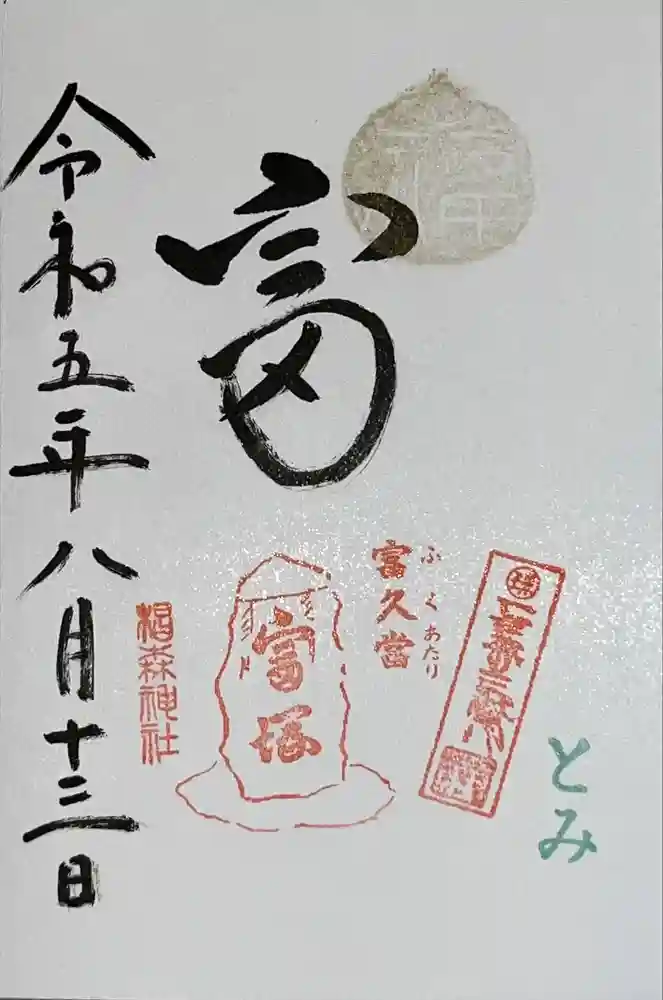 福
富
ふくあたり
富久當
富塚
とみ
椙森神社
令和五年八月十三日